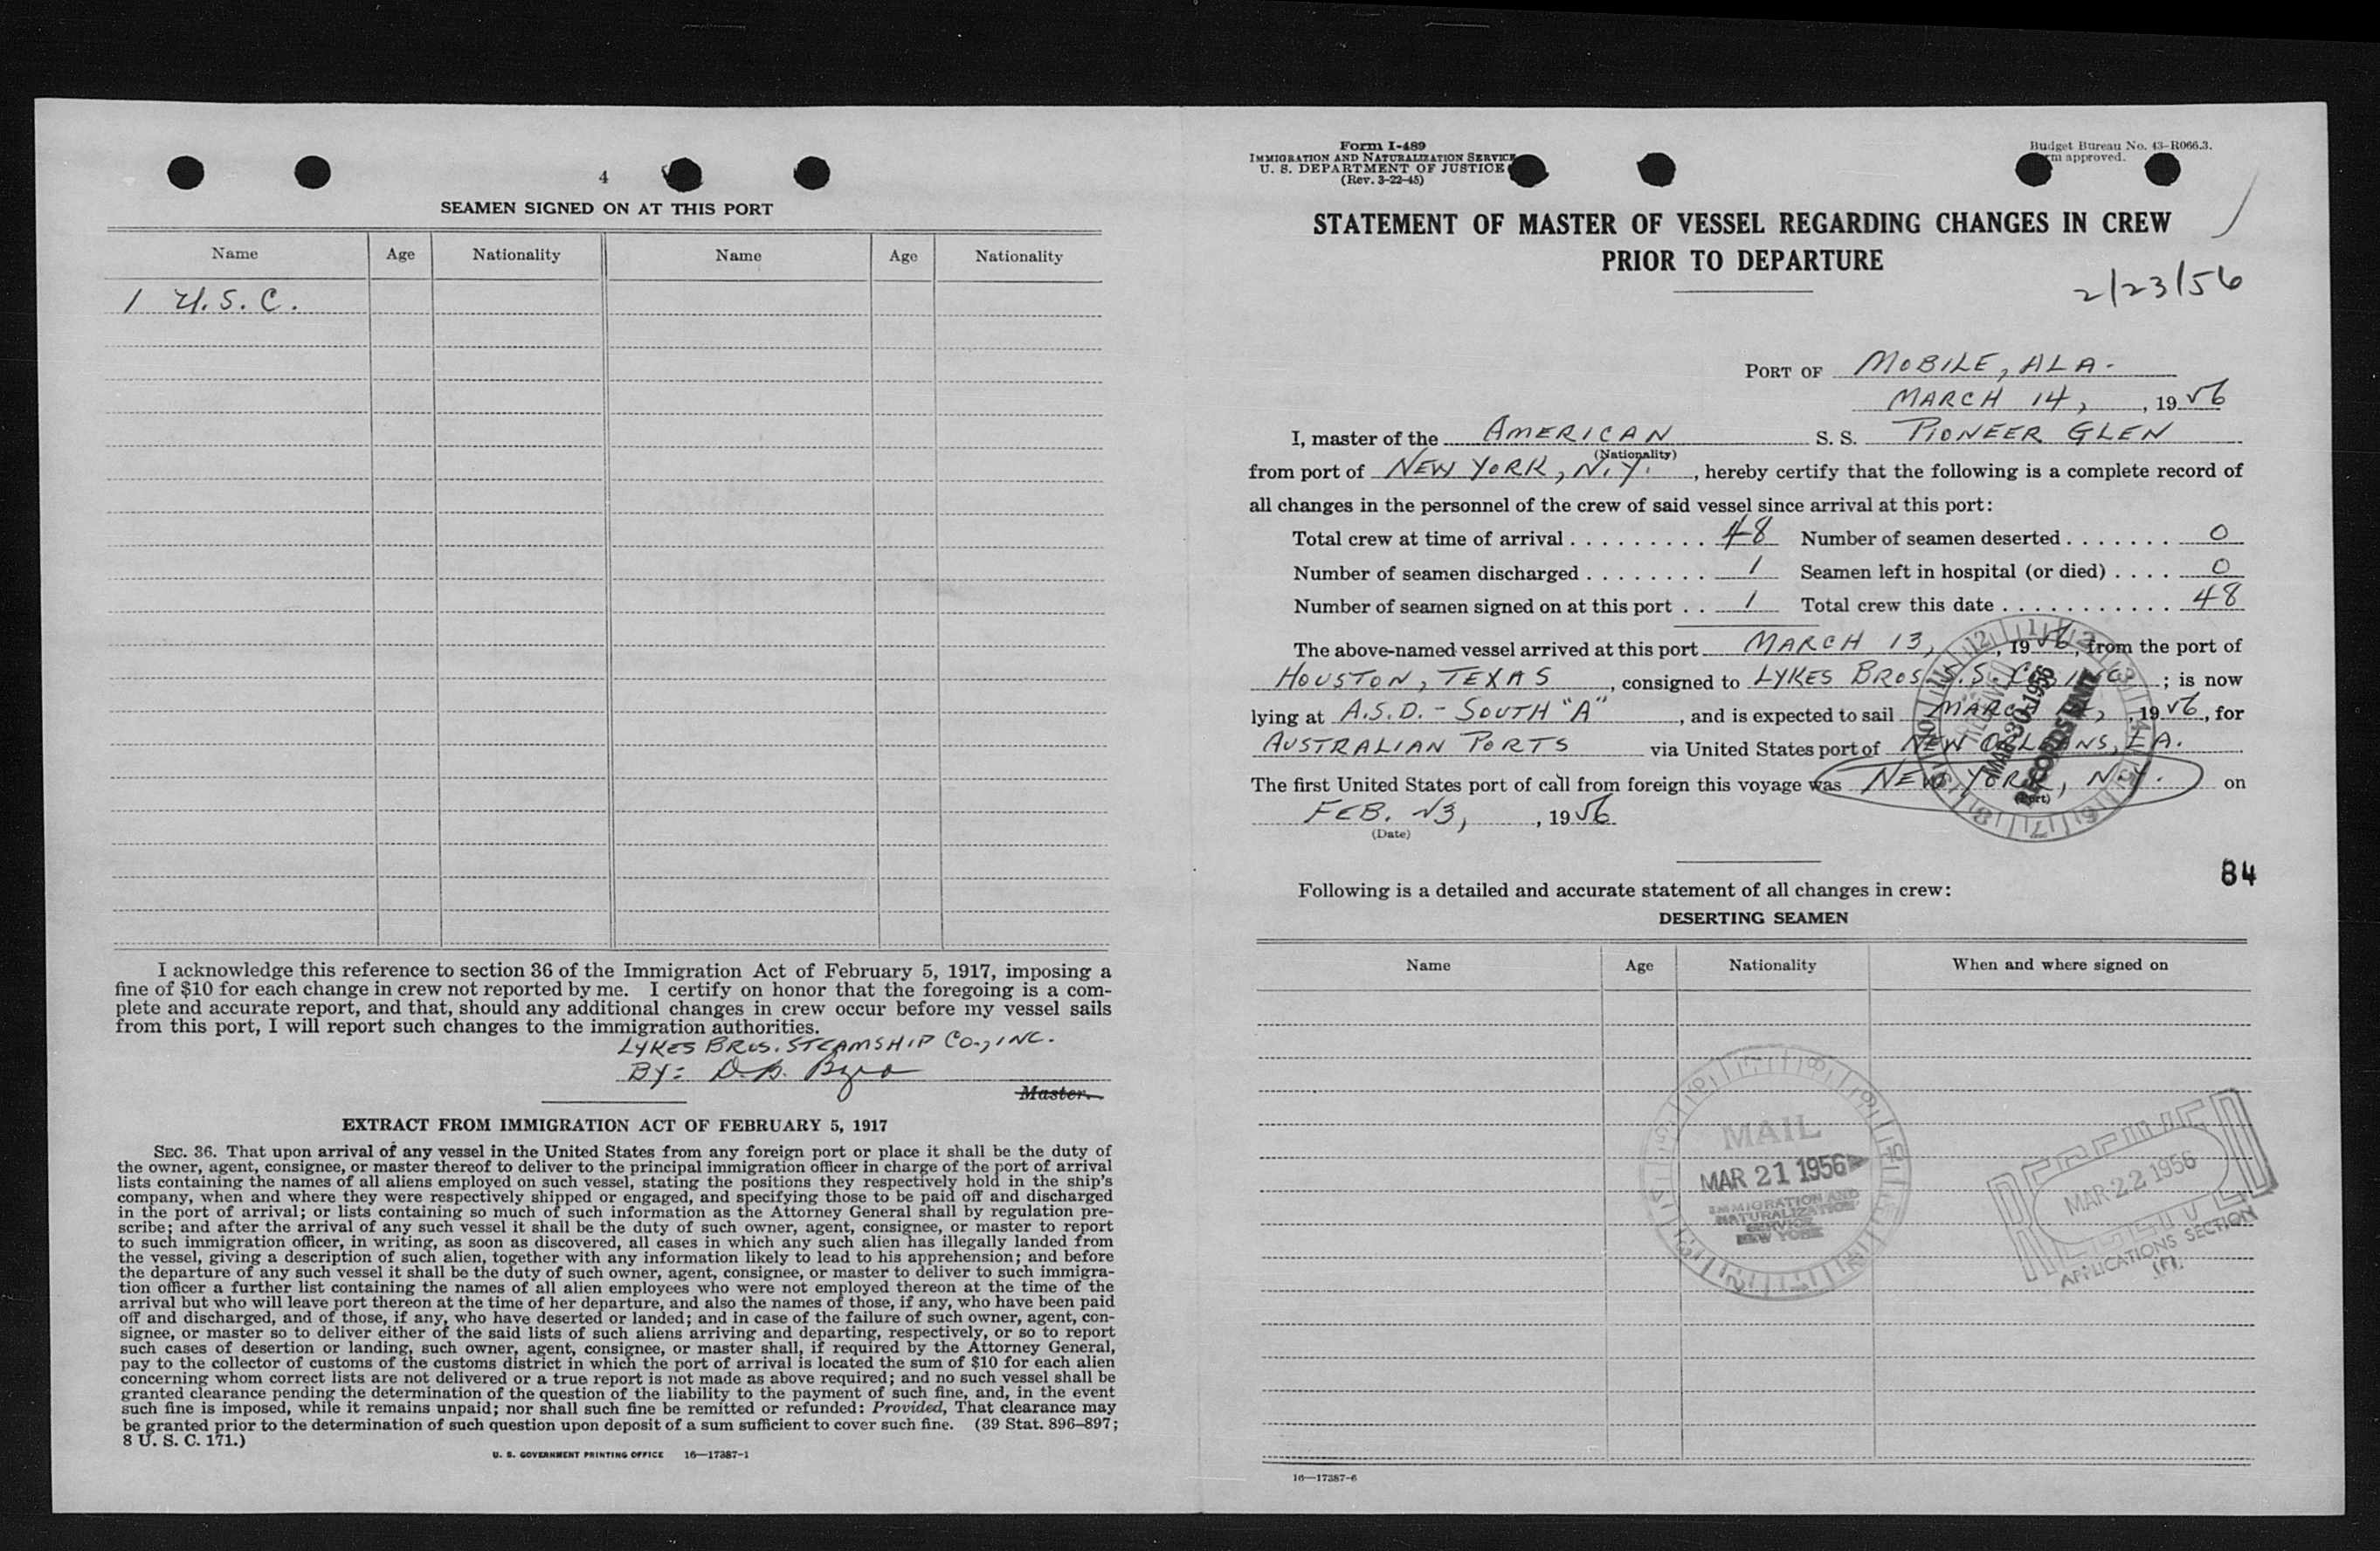 4
SEAMEN SIGNED ON AT THIS PORT
Name Age Nationality Name Age Nationality
1 U.S.C.
I acknowledge this reference to section 36 of the Immigration Act of February 5, 1917, imposing a
fine of $10 for each change in crew not reported by me. I certify on honor that the foregoing is a com-
plete and accurate report, and that, should any additional changes in crew occur before my vessel sails
from this port, I will report such changes to the immigration authorities.
LYKES BROS. STEAMSHIP CO., INC.
BY:
Master.
EXTRACT FROM IMMIGRATION ACT OF FEBRUARY 5, 1917
SEC. 36. That upon arrival of any vessel in the United States from any foreign port or place it shall be the duty of
the owner, agent, consignee, or master thereof to deliver to the principal immigration officer in charge of the port of arrival
lists containing the names of all aliens employed on such vessel, stating the positions they respectively hold in the ship's
company, when and where they were respectively shipped or engaged, and specifying those to be paid off and discharged
in the port of arrival; or lists containing so much of such information as the Attorney General shall by regulation pre-
scribe; and after the arrival of any such vessel it shall be the duty of such owner, agent, consignee, or master to report
to such immigration officer, in writing, as soon as discovered, all cases in which any such alien has illegally landed from
the vessel, giving a description of such alien, together with any information likely to lead to his apprehension; and before
the departure of any such vessel it shall be the duty of such owner, agent, consignee, or master to deliver to such immigra-
tion officer a further list containing the names of all alien employees who were not employed thereon at the time of the
arrival but who will leave port thereon at the time of her departure, and also the names of those, if any, who have been paid
off and discharged, and of those, if any, who have deserted or landed; and in case of the failure of such owner, agent, con-
signee, or master so to deliver either of the said lists of such aliens arriving and departing, respectively, or so to report
such cases of desertion or landing, such owner, agent, consignee, or master shall, if required by the Attorney General,
pay to the collector of customs of the customs district in which the port of arrival is located the sum of $10 for each alien
concerning whom correct lists are not delivered or a true report is not made as above required; and no such vessel shall be
granted clearance pending the determination of the question of the liability to the payment of such fine, and, in the event
such fine is imposed, while it remains unpaid; nor shall such fine be remitted or refunded: Provided, That clearance may
be granted prior to the determination of such question upon deposit of a sum sufficient to cover such fine. (39 Stat. 896–897;
8 U. S. C. 171.)
U. S. GOVERNMENT PRINTING OFFICE 16—17387-1
Form I-489
IMMIGRATION AND NATURALIZATION SERVICE
U. S. DEPARTMENT OF JUSTICE
(Rev. 3-22-45)
Budget Bureau No. 43-R066.3.
approved.
STATEMENT OF MASTER OF VESSEL REGARDING CHANGES IN CREW
PRIOR TO DEPARTURE
2/23/56
PORT OF MOBILE, ALA.
MARCH 14, , 1956
I, master of the AMERICAN S. S. PIONEER GLEN
(Nationality)
from port of NEW YORK, N.Y. , hereby certify that the following is a complete record of
all changes in the personnel of the crew of said vessel since arrival at this port:
Total crew at time of arrival . . . . . . . . . 48 Number of seamen deserted . . . . . . . 0
Number of seamen discharged . . . . . . . . 1 Seamen left in hospital (or died) . . . . 0
Number of seamen signed on at this port . . 1 Total crew this date . . . . . . . . . . . 48
The above-named vessel arrived at this port MARCH 13, , 1956, from the port of
HOUSTON, TEXAS , consigned to LYKES BROS. S.S. CO. INC. ; is now
lying at A.S.D. - SOUTH "A" , and is expected to sail MARCH , 1956, for
AUSTRALIAN PORTS via United States port of NEW ORLEANS, LA.
The first United States port of call from foreign this voyage was NEW YORK, N.Y. on
(Port)
FEB. 23, , 1956
(Date)
MAR 30 1956
RECORDS UNIT
84
Following is a detailed and accurate statement of all changes in crew:
DESERTING SEAMEN
Name Age Nationality When and where signed on
MAIL
MAR 21 1956
IMMIGRATION AND
NATURALIZATION
SERVICE
NEW YORK
RECEIVED
MAR 22 1956
APPLICATIONS SECTION
16—17387-6